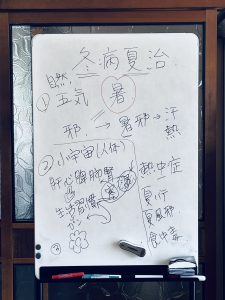 冬病夏治
自然
① 五気 暑
邪 → 暑邪 → 汗
熱
② 小宇宙(人体)
肝心脾肺腎
生活習慣
熱中症
夏バテ
夏風邪
食中毒
③